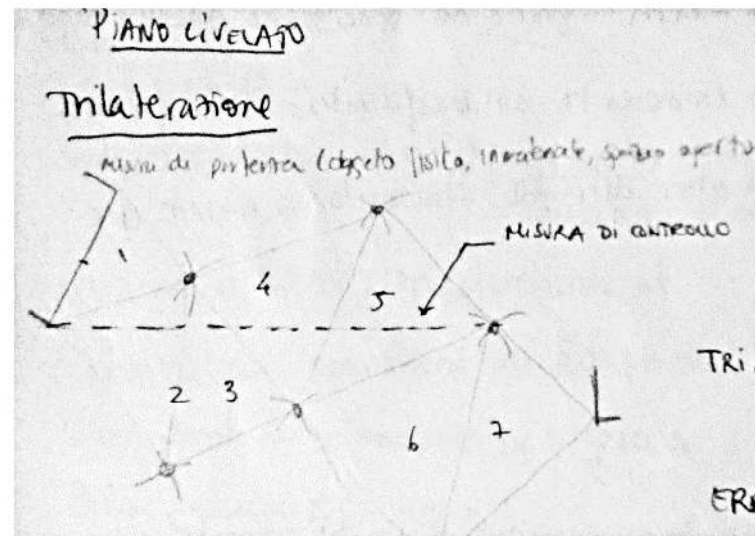 PIANO LIVELATO
Trilaterazione
misura di partenza (oggeto fisico, immateriale, spazio aperto
MISURA DI CONTROLLO
1
4
5
2
3
6
7
TRI
ER